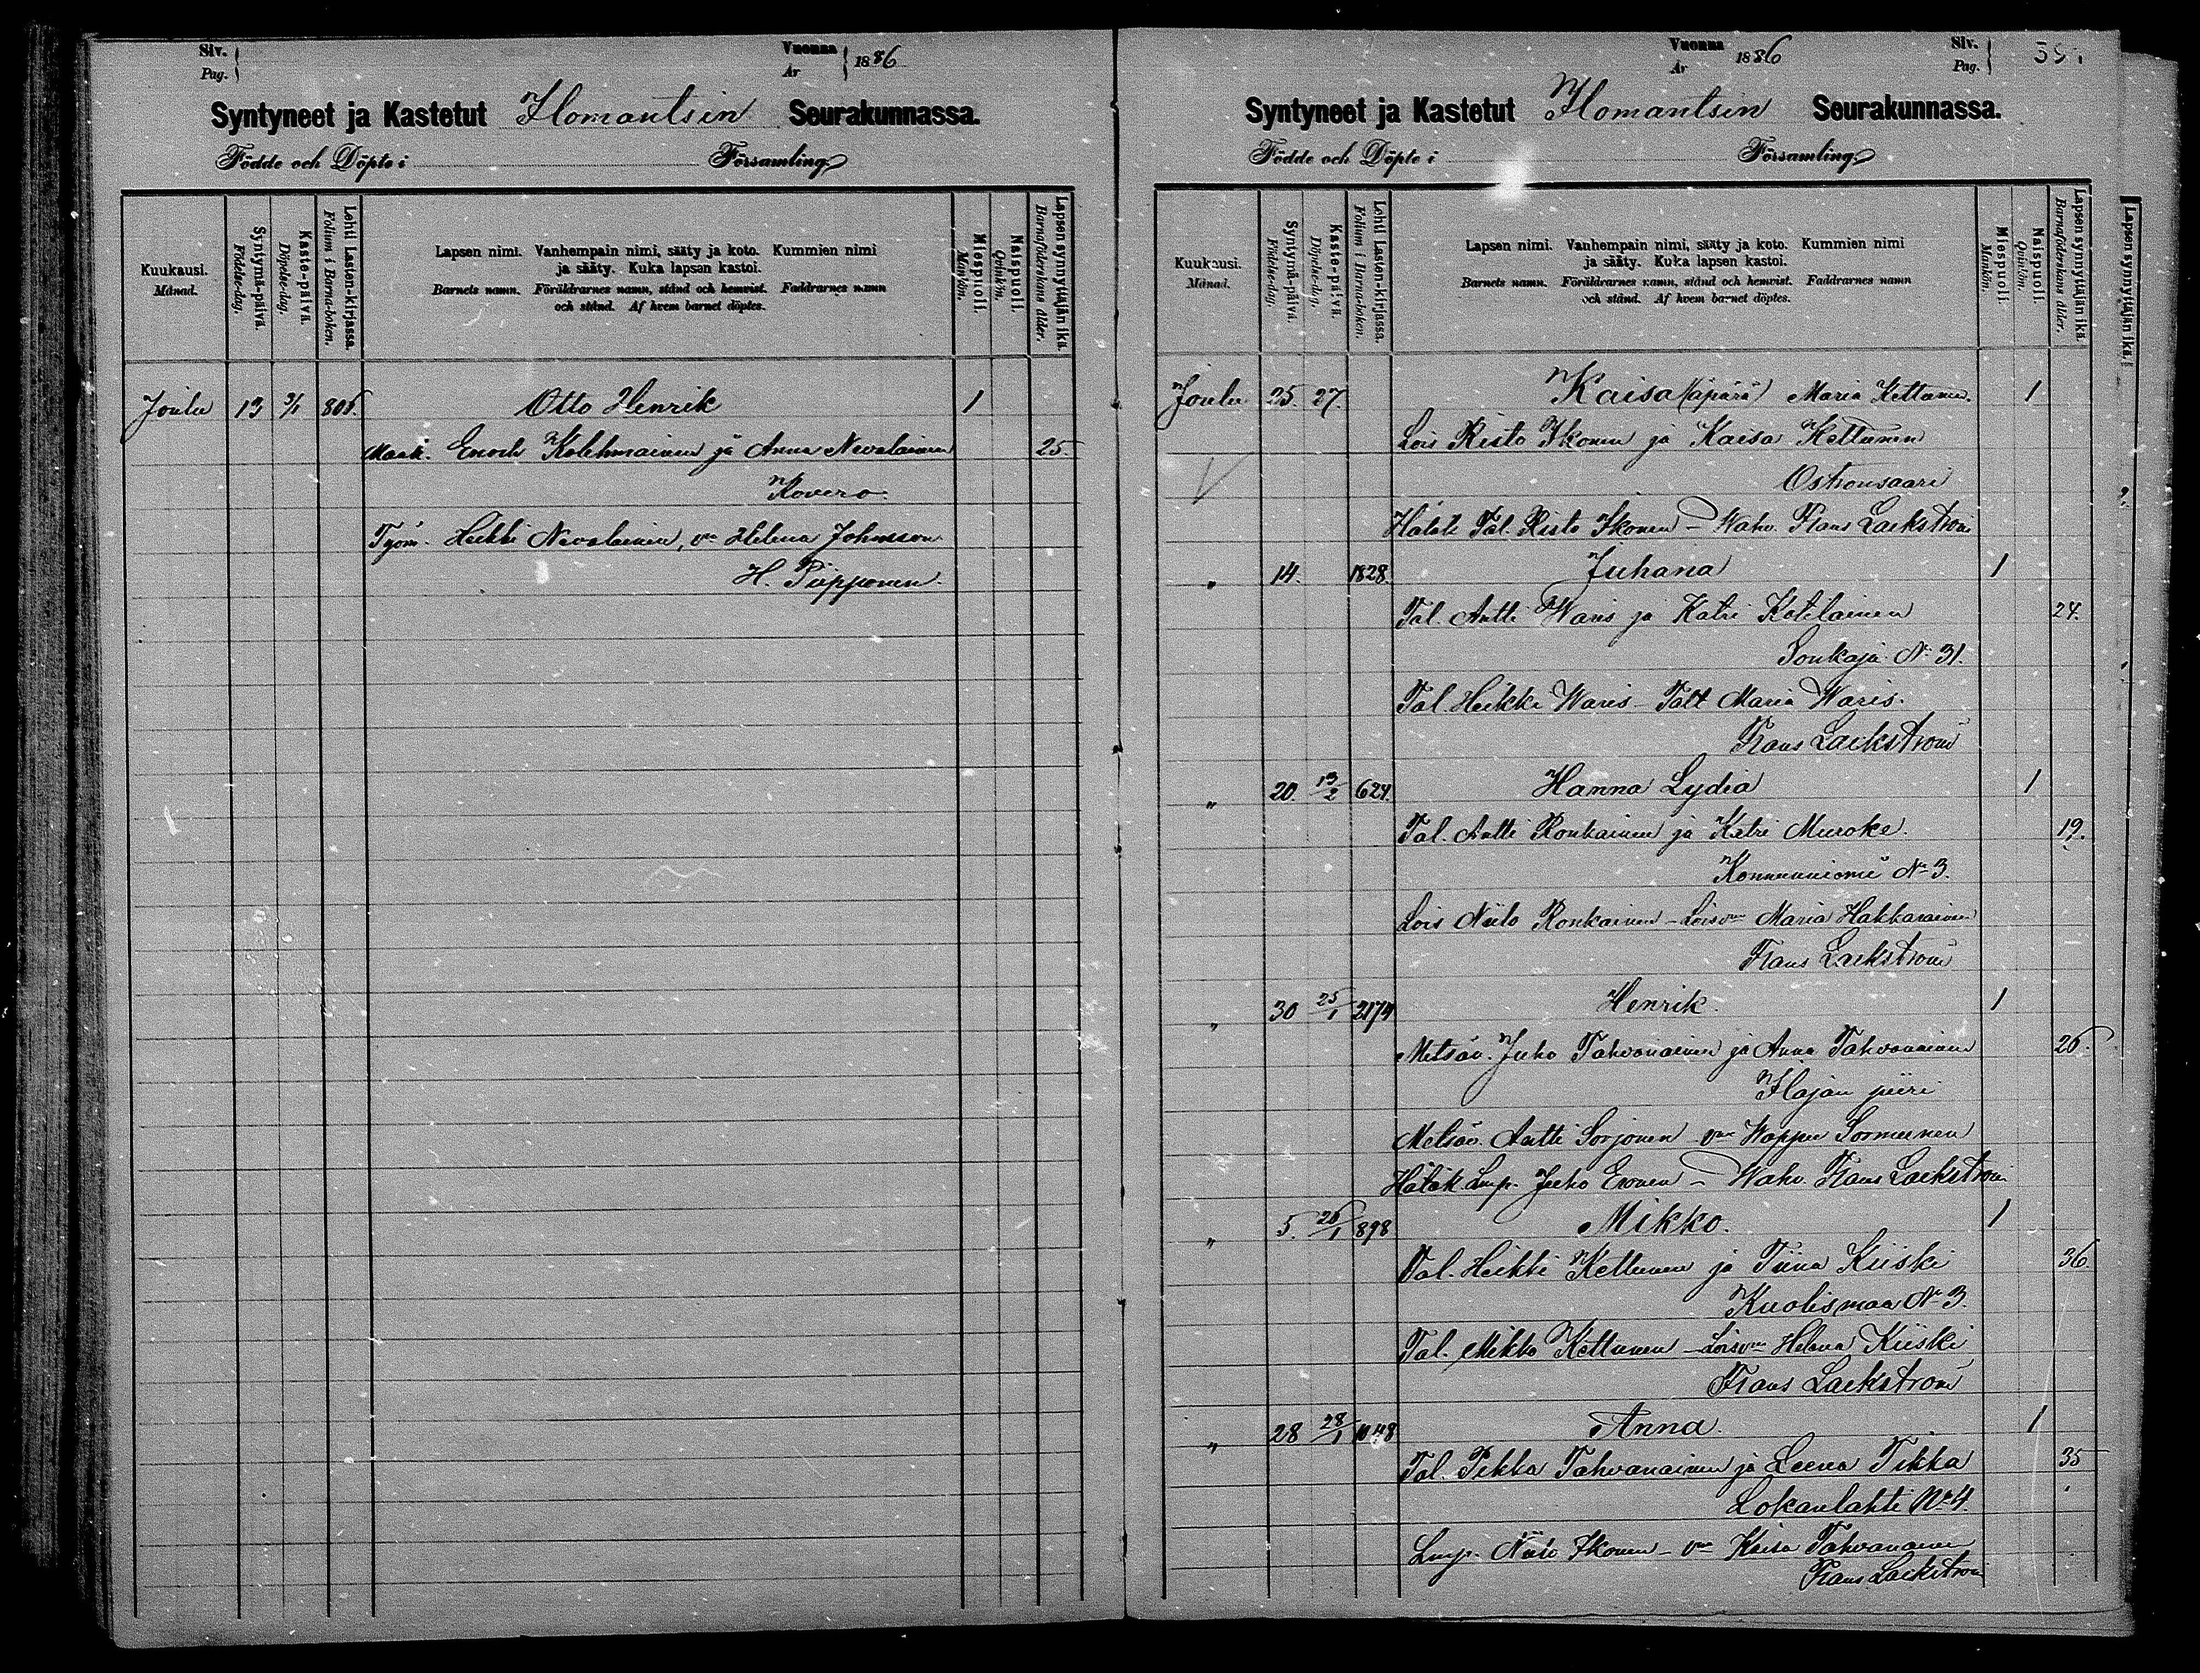 Siv. Pag. Vuonna År 1886
Syntyneet ja Kastetut Ilomantsin Seurakunnassa.
Födde och Döpte i Församling.
Kuukausi. Månad.
Syntymä-päivä. Födelse-dag.
Kaste-päivä. Döpelse-dag.
Lehti Lasten-kirjassa. Folium i Barna-boken.
Lapsen nimi. Vanhempain nimi, sääty ja koto. Kummien nimi
ja sääty. Kuka lapsen kastoi.
Barnets namn. Föräldrarnes namn, stånd och hemvist. Faddrarnes namn
och stånd. Af hvem barnet döptes.
Miespuoli. Mankön.
Naispuoli. Qvinkön.
Lapsen synnyttäjän ikä. Barnaföderskans ålder.
Joulu 13 3/1 805. Otto Henrik 1
Maak. Enoch Kolehmainen ja Anna Nevalainen 25.
Kovero.
Työm. Heikki Nevalainen, vmo Helena Johnsson
H. Piipponen.
Vuonna År 1886 Siv. Pag.
Syntyneet ja Kastetut Ilomantsin Seurakunnassa.
Födde och Döpte i Församling.
Kuukausi. Månad.
Syntymä-päivä. Födelse-dag.
Kaste-päivä. Döpelse-dag.
Lehti Lasten-kirjassa. Folium i Barna-boken.
Lapsen nimi. Vanhempain nimi, sääty ja koto. Kummien nimi
ja sääty. Kuka lapsen kastoi.
Barnets namn. Föräldrarnes namn, stånd och hemvist. Faddrarnes namn
och stånd. Af hvem barnet döptes.
Miespuoli. Mankön.
Naispuoli. Qvinkön.
Lapsen synnyttäjän ikä. Barnaföderskans ålder.
Lapsen synnyttäjän ikä.
Joulu 25. 27. Kaisa (äpärä) Maria Kettunen. 1
Lois Risto Ikonen ja Kaisa Kettunen
Ostronsaari
Hätäk Tal. Risto Ikonen – Wahv. Frans Lackström
" 14. 1828. Juhana 1
Tal. Antti Waris ja Katri Kotilainen 24.
Sonkaja No 31.
Tal. Heikki Waris – Talt Maria Waris.
Frans Lackström
" 20. 13/2 624. Hanna Lydia 1
Tal. Antti Ronkainen ja Katri Muroke. 19.
No 3.
Lois Niilo Ronkainen – Loisvmo Maria Hakkarainen
Frans Lackström
" 30 25/1 2174 Henrik. 1
Metsäv. Juho Tahvanainen ja Anna Tahvanainen 26.
Ilajan piiri
Metsäv. Antti Sorjonen vmo Wappu Sormunen
Hätäk Lmp. Juho Eronen – Wahv. Frans Lackström
" 5. 26/1 898 Mikko. 1
Tal. Heikki Kettunen ja Tiina Kiiski 36.
Kuolismaa No 3.
Tal. Mikko Kettunen – Loisvmo Helena Kiiski
Frans Lackström
" 28 28/1 1048 Anna. 1
Tal. Pekka Tahvanainen ja Leena Tikka 35
Lokanlahti No 4.
Lmp. Niilo Ikonen – vmo Kaisa Tahvanainen
Frans Lackström